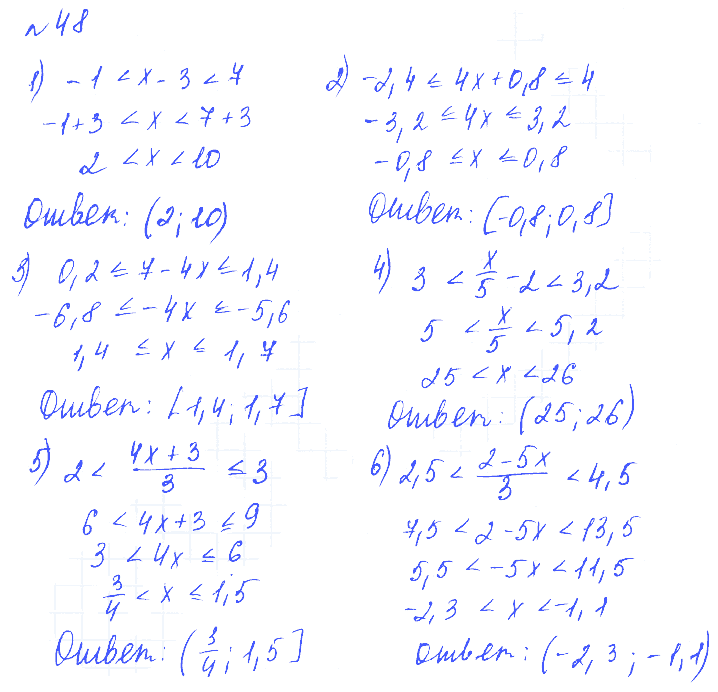 №48
1) -1 < x - 3 < 7
-1+3 < x < 7+3
2 < x < 10
Ответ: (2; 10)
2) -2,4 ≤ 4x+0,8 ≤ 4
-3,2 ≤ 4x ≤ 3,2
-0,8 ≤ x ≤ 0,8
Ответ: [-0,8; 0,8]
3) 0,2 ≤ 7 - 4x ≤ 1,4
-6,8 ≤ -4x ≤ -5,6
1,4 ≤ x ≤ 1,7
Ответ: [1,4; 1,7]
4) 3 < x/5 - 2 < 3,2
5 < x/5 < 5,2
25 < x < 26
Ответ: (25; 26)
5) 2 < (4x + 3)/3 ≤ 3
6 < 4x+3 ≤ 9
3 < 4x ≤ 6
3/4 < x ≤ 1,5
Ответ: (3/4; 1,5]
6) 2,5 < (2-5x)/3 < 4,5
7,5 < 2-5x < 13,5
5,5 < -5x < 11,5
-2,3 < x < -1,1
Ответ: (-2,3; -1,1)